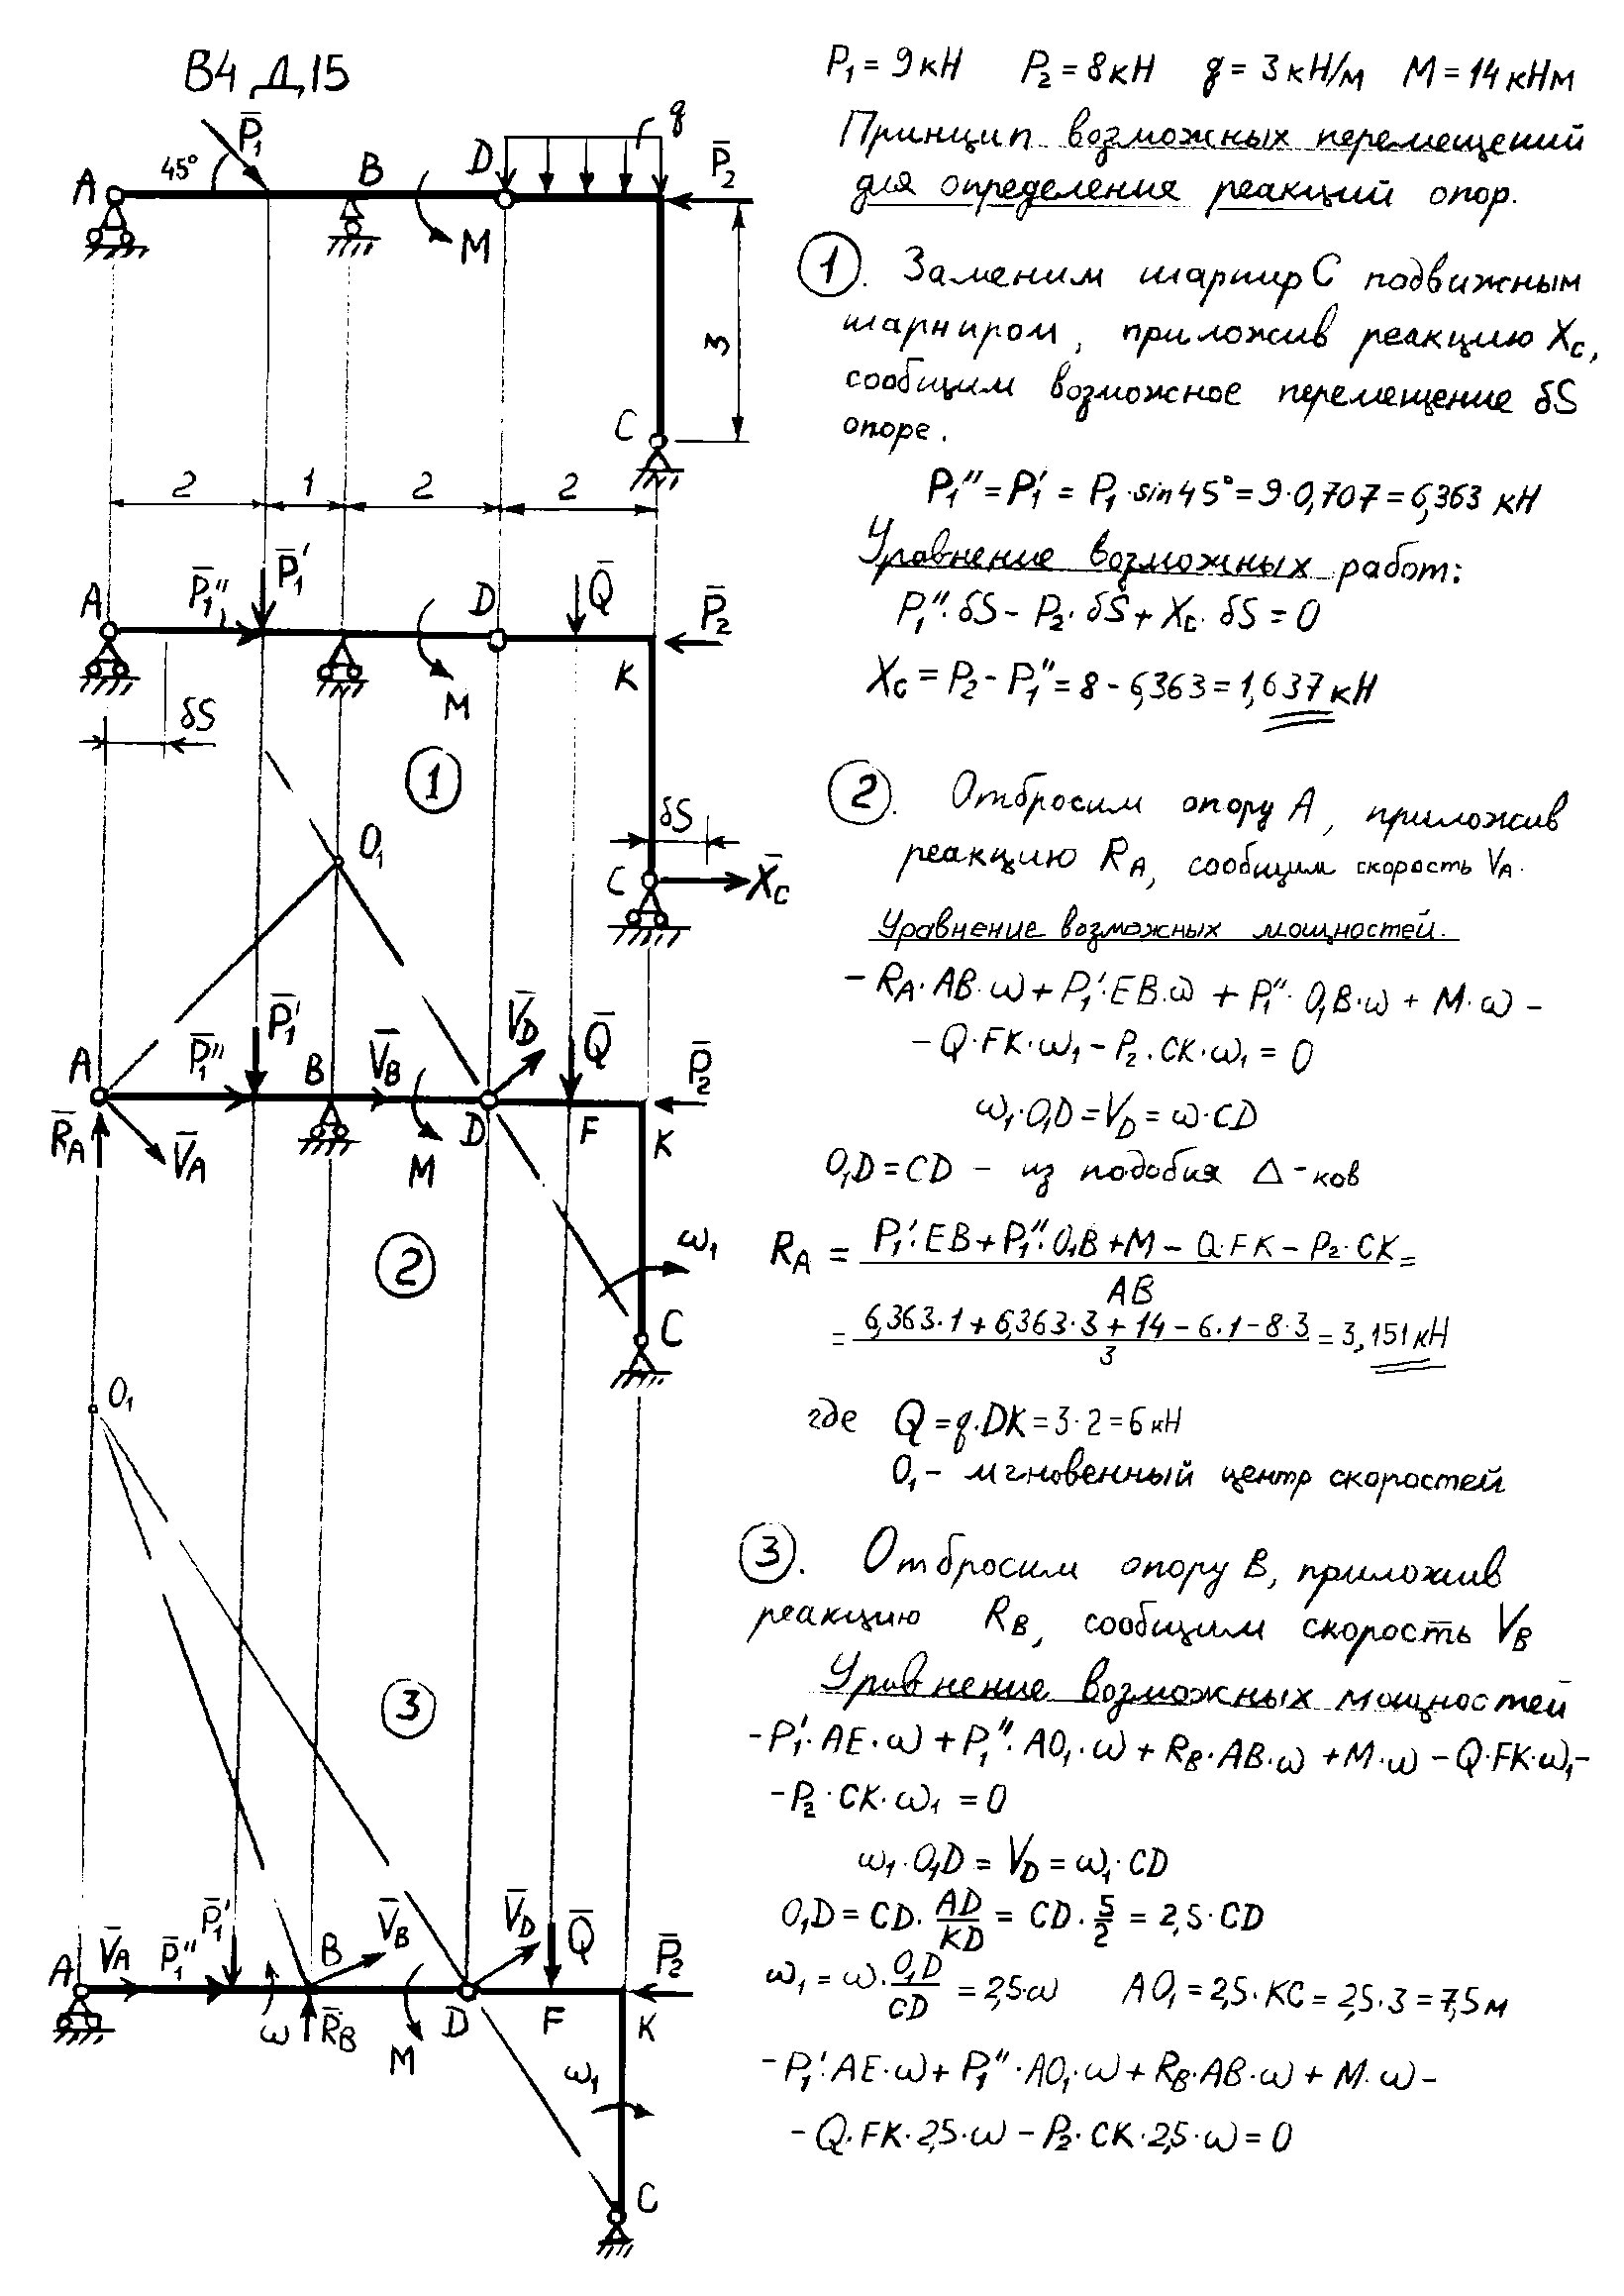 В4 Д15
P₁ = 9 кН P₂ = 8 кН q = 3 кН/м M = 14 кНм
Принцип возможных перемещений
для определения реакций опор.
A 45° P̄₁ B M D q P̄₂
3
C
2 1 2 2
① . Заменим шарнир C подвижным
шарниром, приложив реакцию Xc,
сообщим возможное перемещение δS
опоре.
P₁″ = P₁′ = P₁·sin45° = 9·0,707 = 6,363 кН
Уравнение возможных работ:
P₁″·δS - P₂·δS + Xc·δS = 0
Xc = P₂ - P₁″ = 8 - 6,363 = 1,637 кН
A P̄₁″ P̄₁′ M D Q̄ K P̄₂
δS
①
δS
C X̄c
② . Отбросим опору A, приложив
реакцию RA, сообщим скорость VA.
Уравнение возможных мощностей.
- RA·AB·ω + P₁′·EB·ω + P₁″·O₁B·ω + M·ω -
- Q·FK·ω₁ - P₂·CK·ω₁ = 0
ω₁·O₁D = VD = ω·CD
O₁D = CD - из подобия Δ-ков
RA = P₁′·EB + P₁″·O₁B + M - Q·FK - P₂·CK =
AB
= 6,363·1 + 6,363·3 + 14 - 6·1 - 8·3 = 3,151 кН
3
где Q = q·DK = 3·2 = 6 кН
O₁ - мгновенный центр скоростей
O₁
A P̄₁″ P̄₁′ B V̄B V̄D D Q̄ F P̄₂ K
R̄A V̄A M
②
ω₁
C
③ . Отбросим опору B, приложив
реакцию RB, сообщим скорость VB
Уравнение возможных мощностей
- P₁′·AE·ω + P₁″·AO₁·ω + RB·AB·ω + M·ω - Q·FK·ω₁ -
- P₂·CK·ω₁ = 0
ω₁·O₁D = VD = ω₁·CD
O₁D = CD·AD/KD = CD·5/2 = 2,5·CD
ω₁ = ω·O₁D/CD = 2,5·ω AO₁ = 2,5·KC = 2,5·3 = 7,5 м
- P₁′·AE·ω + P₁″·AO₁·ω + RB·AB·ω + M·ω -
- Q·FK·2,5·ω - P₂·CK·2,5·ω = 0
O₁
③
A V̄A P̄₁″ P̄₁′ B V̄B V̄D Q̄ P̄₂
ω R̄B M D F K
ω₁
C